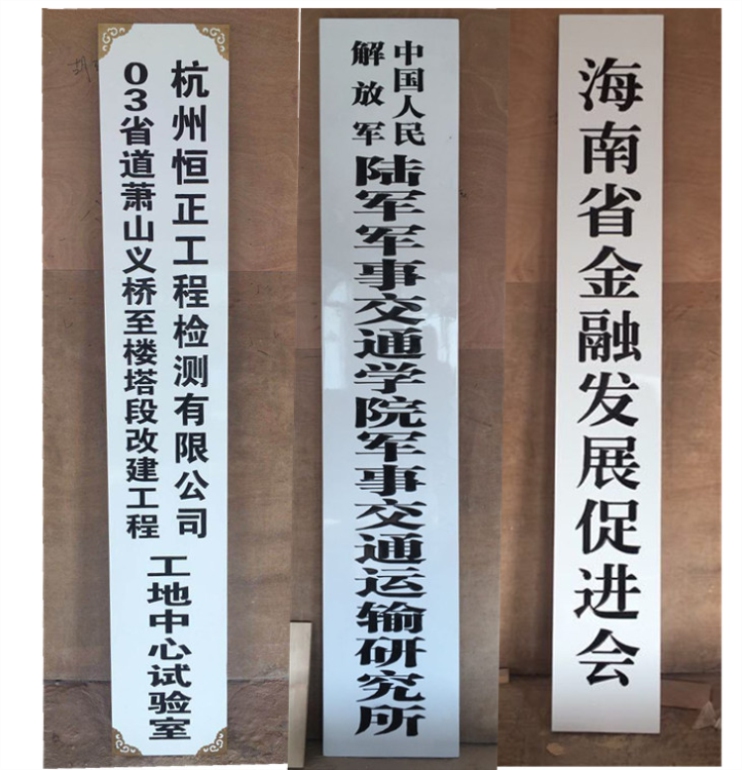 杭州恒正工程检测有限公司
03省道萧山义桥至楼塔段改建工程
工地中心试验室
中国人民
解放军
陆军军事交通学院军事交通运输研究所
海南省金融发展促进会